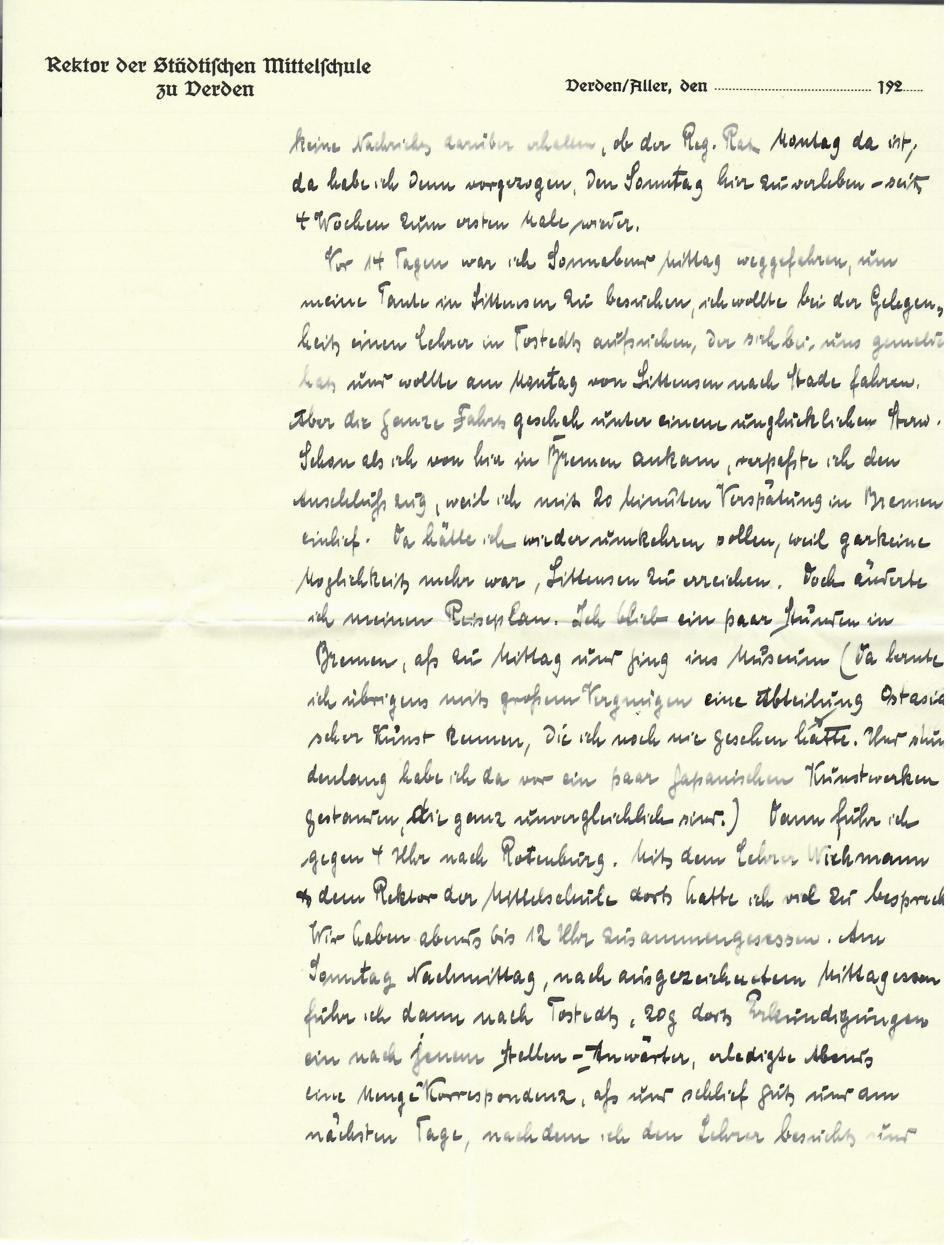 Rektor der Städtischen Mittelschule
zu Verden
Verden/Aller, den 192
keine Nachricht darüber erhalten, ob der Reg. Rat Montag da ist,
da habe ich denn vorgezogen, den Sonntag hier zu verleben – seit
4 Wochen zum ersten Male wieder.
Vor 14 Tagen war ich Sonnabend Mittag weggefahren, um
meine Tante in Sittensen zu besuchen, ich wollte bei der Gelegen-
heit einen Lehrer in Tostedt aufsuchen, der sich bei uns gemeldet
hat und wollte am Montag von Sittensen nach Stade fahren.
Aber die ganze Fahrt geschah unter einem unglücklichen Stern.
Schon als ich von hier in Bremen ankam, verpaßte ich den
Anschlußzug, weil ich mit 20 Minuten Verspätung in Bremen
einlief. Da hätte ich wieder umkehren sollen, weil gar keine
Möglichkeit mehr war, Sittensen zu erreichen. Doch änderte
ich meinen Reiseplan. Ich blieb ein paar Stunden in
Bremen, aß zu Mittag und ging ins Museum (Da lernte
ich übrigens mit großem Vergnügen eine Abteilung Ostasia
scher Kunst kennen, die ich noch nie gesehen hatte. Nur stun
denlang habe ich da vor ein paar Japanischen Kunstwerken
gestanden, die ganz unvergleichlich sind.) Dann fuhr ich
gegen 4 Uhr nach Rotenburg. Mit dem Lehrer Wichmann
dem Rektor der Mittelschule dort hatte ich viel zu besprech
Wir haben abends bis 12 Uhr zusammengesessen. Am
Sonntag Nachmittag, nach ausgezeichnetem Mittagessen
fuhr ich dann nach Tostedt, zog dort Erkundigungen
ein nach jenem Stellen-Anwärter, erledigte Abends
eine Menge Korrespondenz, aß und schlief gut und am
nächsten Tage, nachdem ich den Lehrer besucht und